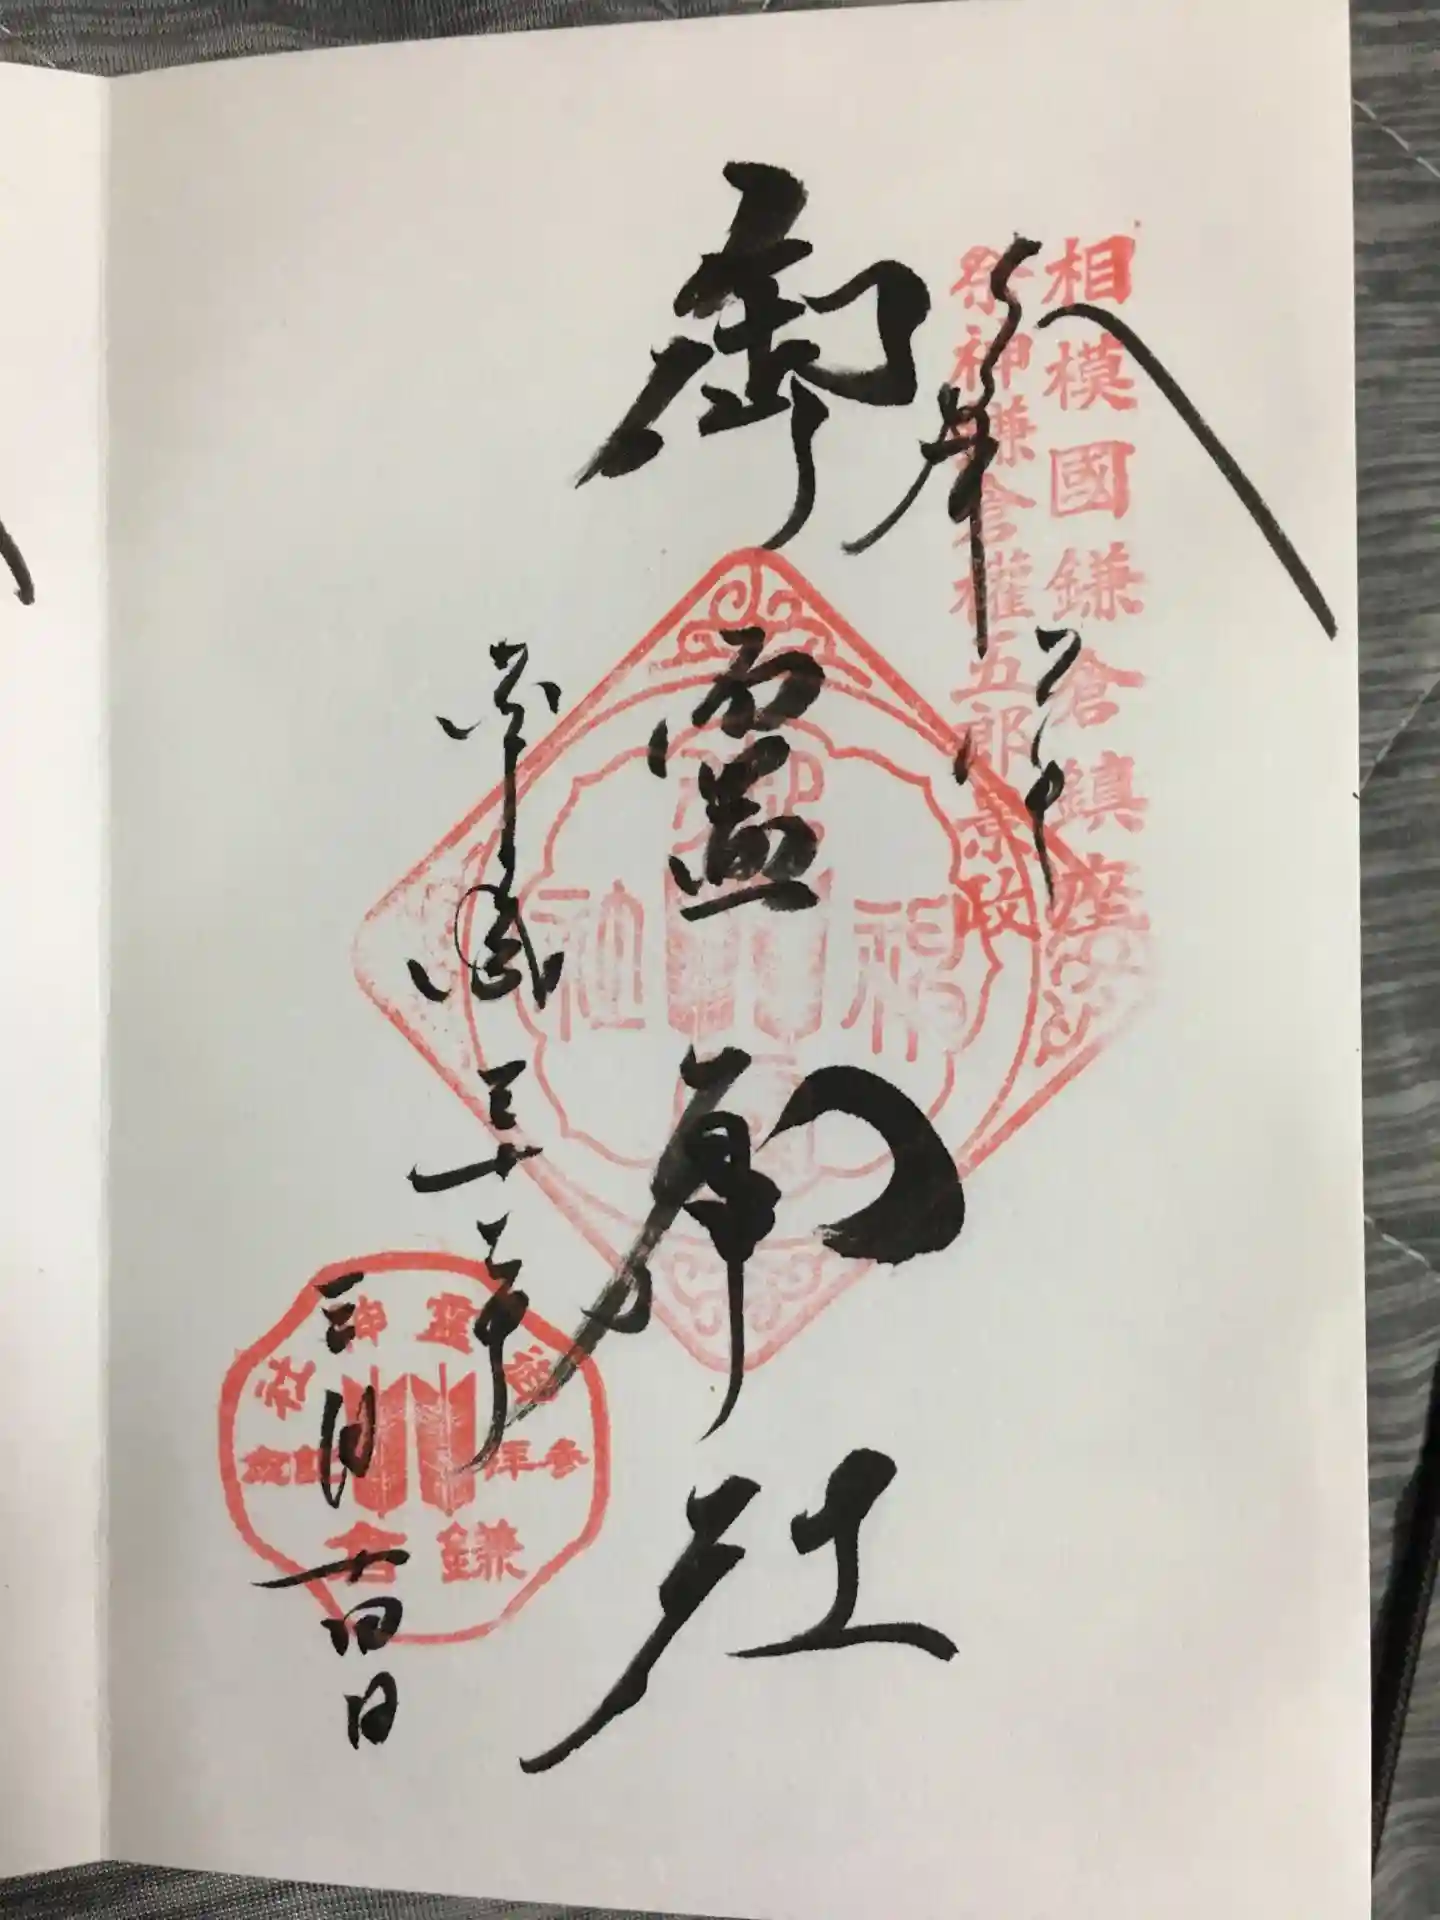 相模國鎌倉鎮座
祭神鎌倉權五郎景政
奉拝
御霊神社
平成三十一年
三月十四日
御霊神社
御霊神社
参拝記念
鎌倉